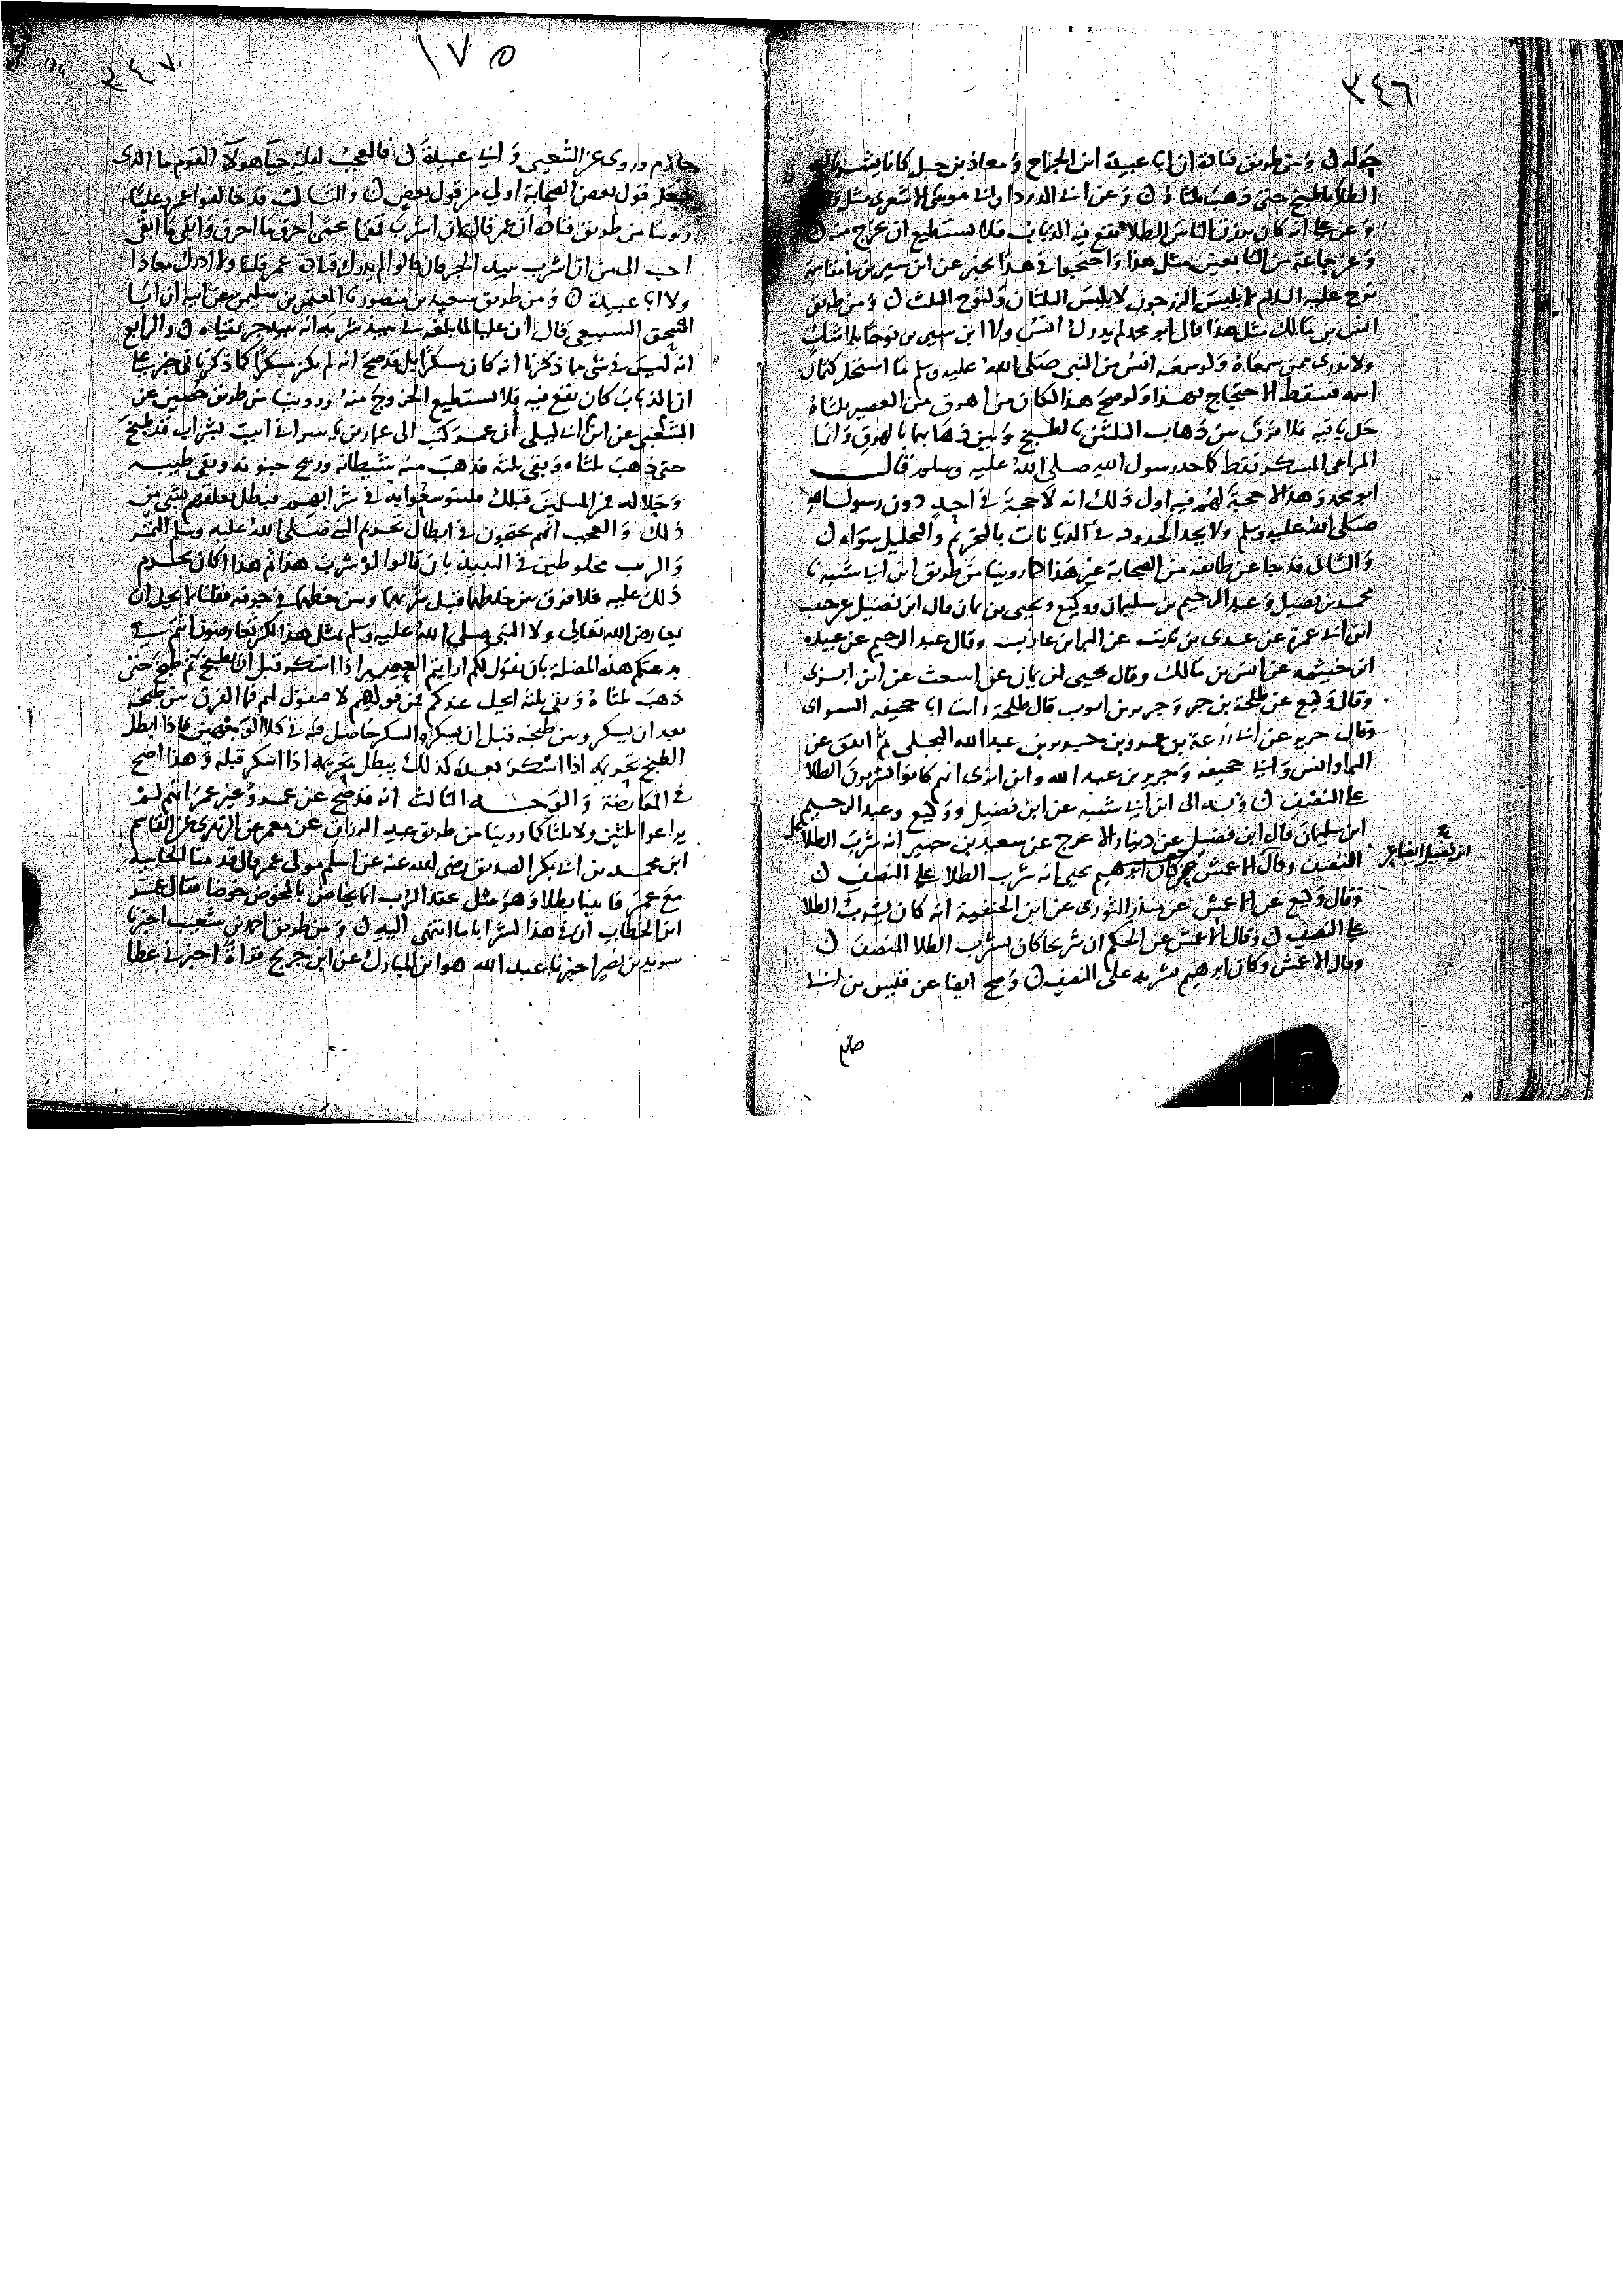 ٣٤٦
حوله ن ومن طريق قتادة ان ابا عبيدة ابن الجراح ومعاذ بن جبل كانا يشربان
الطلا ما طبخ حتى ذهب ثلثاه ن وعن ابى الدرداء وابى موسى الاشعرى مثل
وعن على انه كان يرزق الناس الطلا يقع فيه الذباب فلا يستطيع ان يخرج منه ن
وعن جماعة من التابعين مثل هذا واحتجوا فى هذا بخبر عن ابن سيرين فى مقاسمة
نوح عليه السلم ابليس الزرجون لابليس الثلثان ولنوح الثلث ن ومن طريق
انس بن مالك مثل هذا قال ابو محمد لم يدرك انس ولا ابن سيرين نوحا بلا شك
ولا ندرى ممن سمعاه ولو سمعه انس من النبى صلى الله عليه وسلم ما استحل كتمان
اسمه فسقط الاحتجاج بهذا ولو صح هذا لكان من اهرق من العصير ثلثاه
حل باقيه فلا فرق بين ذهاب الثلثين بالطبخ وبين ذهابهما بالهرق وانما
المراعى المسكر فقط كما حد رسول الله صلى الله عليه وسلم قال
ابو محمد وهذا لا حجة لهم فيه اول ذلك انه لا حجة فى احد دون رسول الله
صلى الله عليه وسلم ولا يحد الحدود فى الديانات بالتحريم والتحليل سواه ن
والثانى قد جا عن طائفة من الصحابة غير هذا كما روينا من طريق ابن ابى شيبه نا
محمد بن فضيل وعبد الرحيم بن سليمان ووكيع ويحيى بن يمان قال ابن فضيل عن حبيب
ابن ابى عمرة عن عدى بن ثابت عن البرا بن عازب وقال عبد الرحيم عن عبيده
ابن خيثمه عن انس بن مالك وقال يحيى بن يمان عن اسعث عن ابن ابزى
وقال وكيع عن طلحة بن جبر وجرير بن ايوب قال طلحة رايت ابا جحيفه السواى
وقال جرير عن ابى زرعة بن عمرو بن جرير بن عبد الله البجلى ثم اتفق عن
البرا وانس وابى جحيفه وجرير بن عبد الله وابن ابزى انهم كانوا يشربون الطلا
على النصف ن وبه الى ابن ابى شيبه عن ابن فضيل ووكيع وعبد الرحيم
ابن سليمان قال ابن فضيل عن دينار الاعرج عن سعيد بن جبير انه شرب الطلا على
النصف وقال الاعمش عن ابرهيم يحيى انه شرب الطلا على النصف ن
وقال وكيع عن الاعمش عن منذر الثورى عن ابن الحنفية انه كان يشرب الطلا
على النصف ن وقال الاعمش عن الحكم ان شريحا كان يشرب الطلا المنصف ن
وقال الاعمش وكان ابرهيم يشربه على النصف ن وصح ايضا عن قيس بن ابى
حازم
١٧٥
٣٤٧
حازم وروى عن الشعبى وابى عبيدة ن فالعجب لقلة حيا هولا القوم ما الذى
جعل قول بعض الصحابة اولى من قول بعض ن والثالث قد خالفوا عمر وعليا
روينا من طريق قتادة ان عمر قال لان اشرب قمقما محمى احرق ما احرق وابقى ما ابقى
احب الى من ان اشرب نبيد الجر فان قالوا لم يدرك قتادة عمر قلنا ولا ادرك معاذا
ولا ابا عبيدة ن ومن طريق سعيد بن منصور نا المعتمر بن سليمن عن ابيه ان ابا
اسحق السبيعى قال ان عليا لما بلغه فى نبيذ شربه انه نبيد جر تقياه ن والرابع
انه ليس فى شى مما ذكرنا انه كان مسكرا بل قد صح انه لم يكن مسكرا كما ذكرنا فى خبر على
ان الذباب كان يقع فيه فلا يستطيع الخروج منه وروينا من طريق حصين عن
الشعبى عن ابن ابى ليلى ان عمر كتب الى عمار بن ياسر انى اتيت بشراب قد طبخ
حتى ذهب ثلثاه وبقى ثلثه فذهب منه شيطانه وريح جنونه وبقى طيبه
وحلاله فمر المسلمين قبلك فليتوسعوا به فى شرابهم فبطل تعلقهم بشى من
ذلك والعجب انهم يحتجون فى ابطال تحريم النبى صلى الله عليه وسلم التمر
والزبيب مخلوطين فى النبيذ بان قالوا لو شرب هذا ثم هذا اكان يحرم
ذلك عليه فلا فرق بين خلطهما قبل شربهما وبين خلطهما فى جوفه فقلنا لا يحل ان
يعارض الله تعالى ولا النبى صلى الله عليه وسلم بمثل هذا لكن تعارضون انتم فى
بدعتكم هذه المضلة بان نقول لكم ارايتم العصير اذا اسكر قبل ان يطبخ ثم طبخ حتى
ذهب ثلثاه وبقى ثلثه ايحل عندكم فمن قولهم لا فنقول لهم فما الفرق بين طبخه
بعد ان يسكر وبين طبخه قبل ان يسكر والسكر حاصل فيه فى كلا الوجهين فاذا ابطل
الطبخ تحريمه اذا اسكر بعده كذلك يبطل تحريمه اذا اسكر قبله وهذا اصح
فى المعارضة والوجه الثالث انه قد صح عن عمر وغير عمر انهم لم
يراعوا ثلثين ولا ثلثا كما روينا من طريق عبد الرزاق عن معمر عن الزهرى عن القاسم
ابن محمد بن ابى بكر الصديق رضى الله عنه عن اسلم مولى عمر قال قدمنا الجابية
مع عمر فاتينا بطلا وهو مثل عقد الرب انما يخاض بالمخوض خوضا فقال عمر
ابن الخطاب ان فى هذا لشرابا ما انتهى اليه ن ومن طريق احمد بن شعيب اخبرنا
سويد بن نصير اخبرنا عبد الله هو ابن المبارك عن ابن جريج قراة اخبرنى عطا